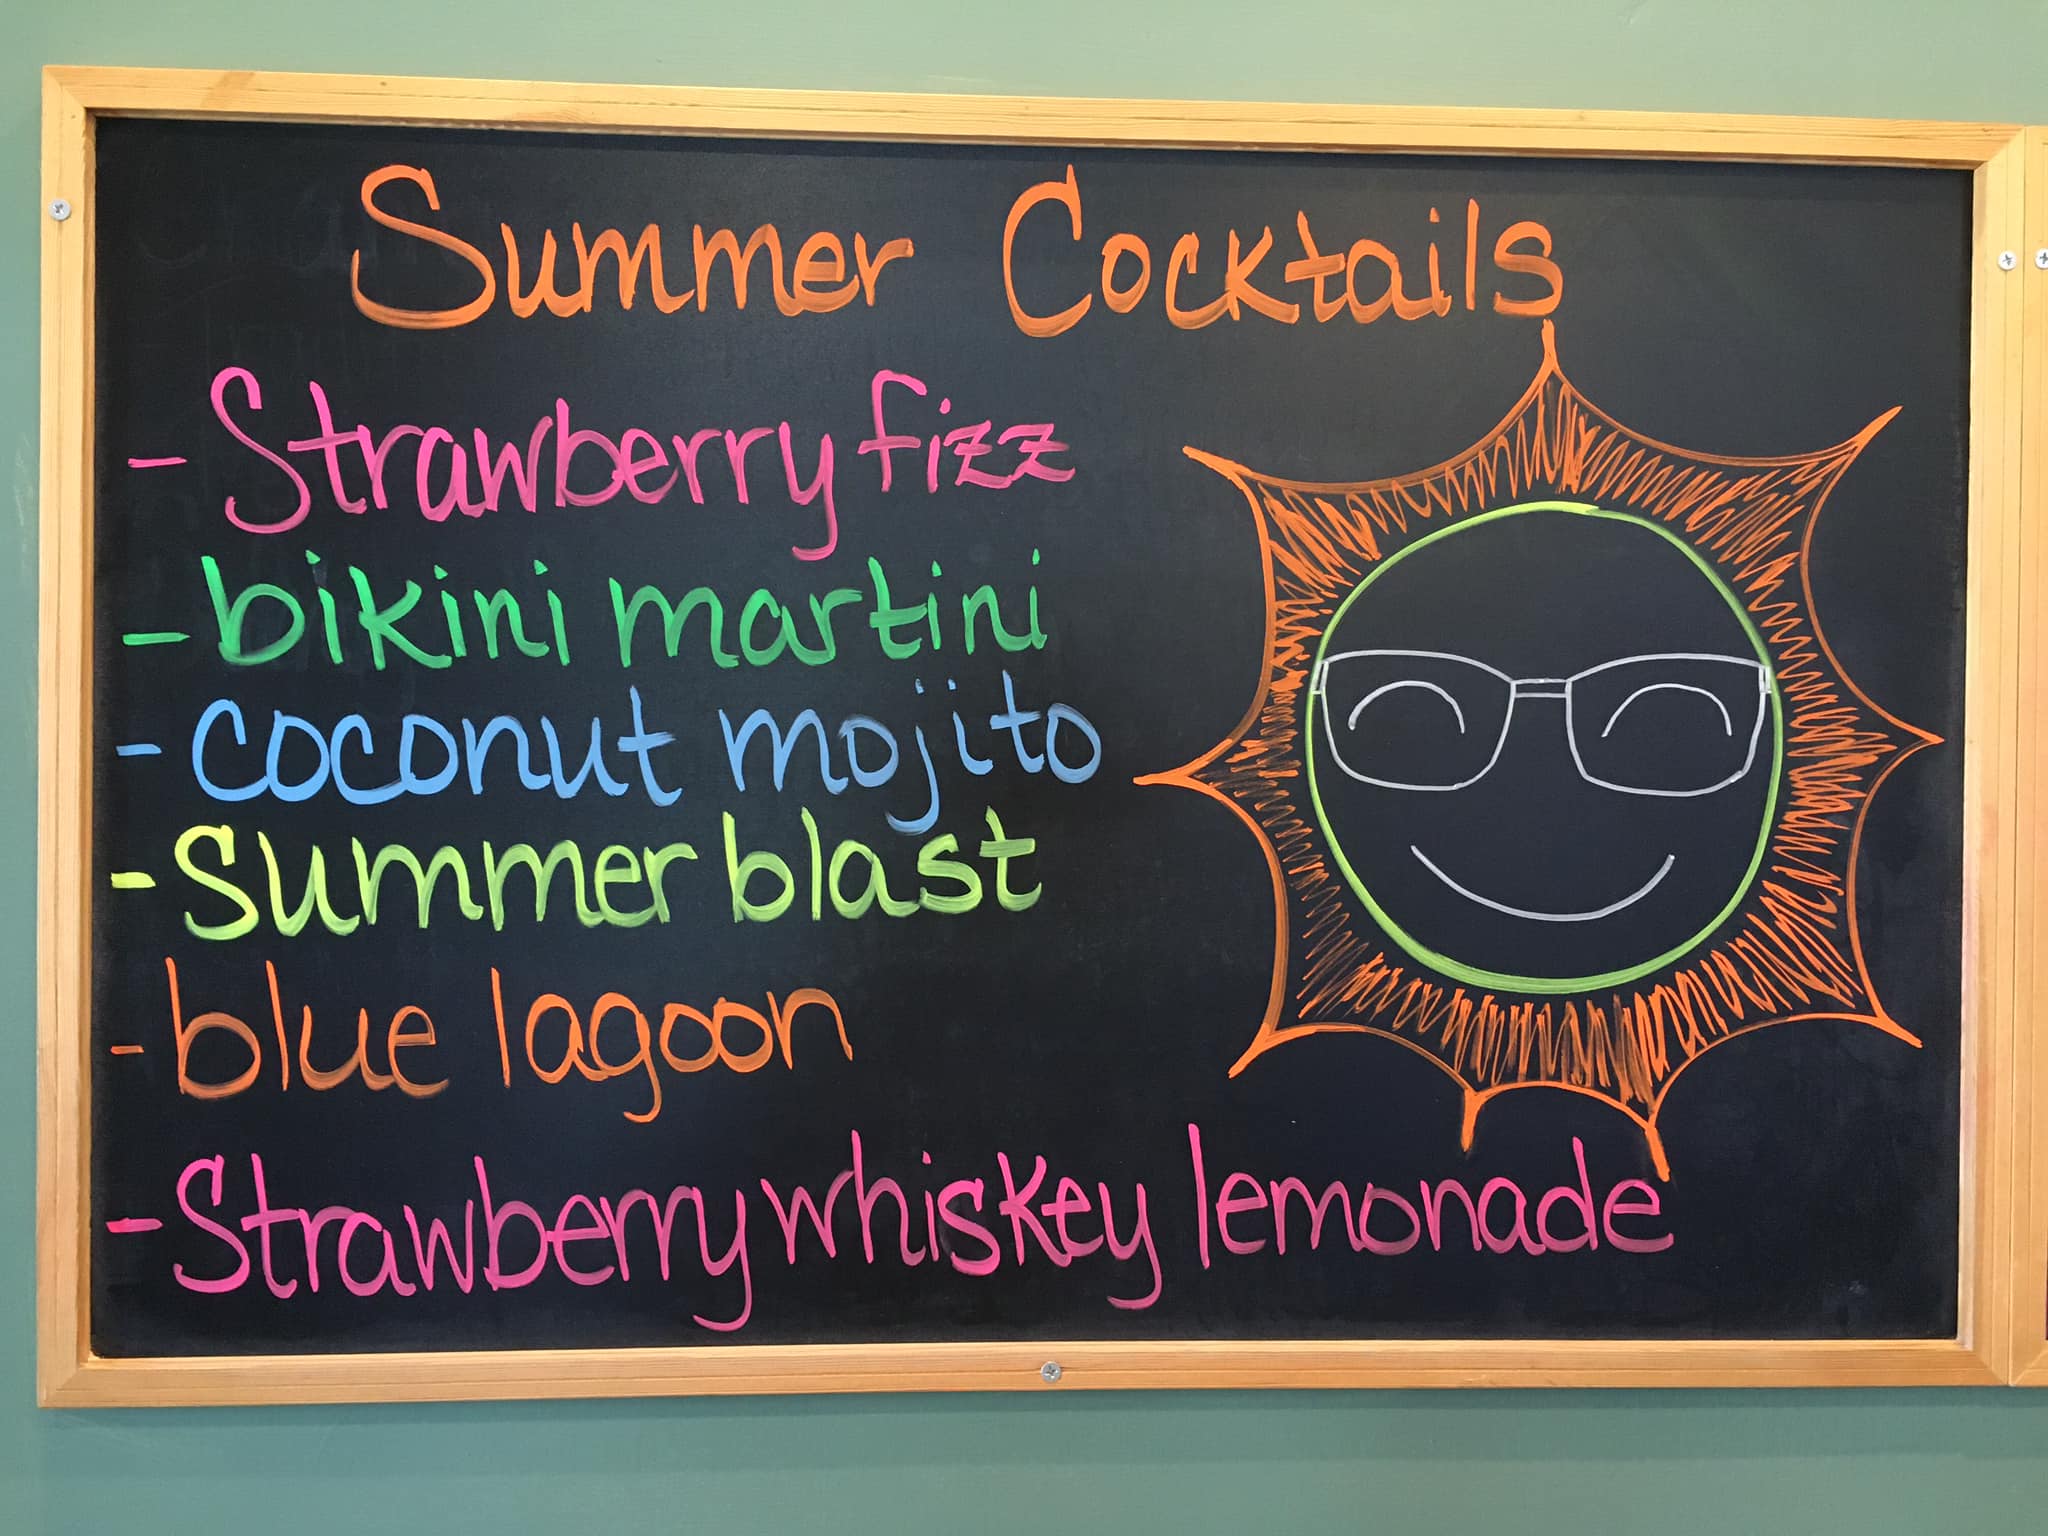 Summer Cocktails
- Strawberry fizz
- bikini martini
- coconut mojito
- Summer blast
- blue lagoon
- Strawberry whiskey lemonade